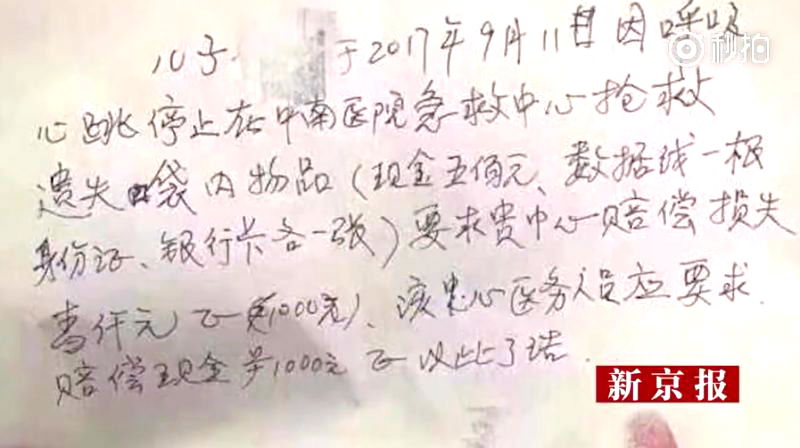 儿子 于2017年9月11日因呼吸
秒拍
心跳停止在中南医院急救中心抢救
遗失口袋内物品（现金五佰元、数据线一根
身份证、银行卡各一张）要求贵中心赔偿损失
壹仟元正（1000元）、该中心医务人员应要求
赔偿现金1000元正以此了结.
新京报